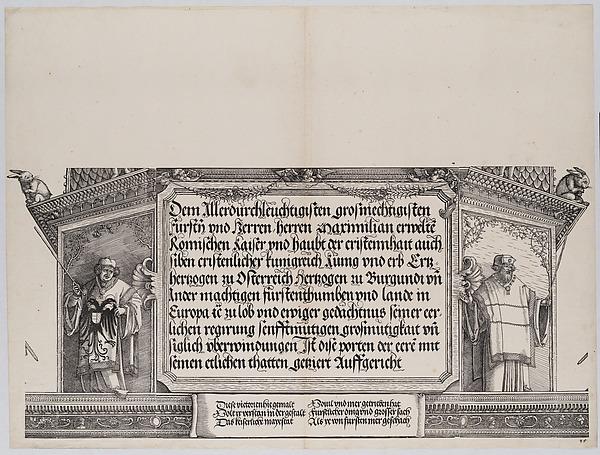 Dem Allerdurchleuchtigisten großmechtigisten
Fursten vnd Herren herren Maximilian erwelte
Romischen Kaiser vnd haubt der cristennhait auch
siben cristenlicher kunigreich kunig vnd erb Ertz
hertzogen zu Osterreich Hertzogen zu Burgundi vn̄
Ander machtigen furstenthumben vnd lande in
Europa ꝛc̄ zu lob vnd ewiger gedachtnus seiner eer
lichen regirung senfftmutigen großmutigkait vn̄
siglich vberwindungen Jst dise porten der eere mit
seinen etlichen thatten getziert Auffgericht
Dise victorien hie gemalt
in der gestalt
Das keiserlich mayestat
vnd mer getriben hat
Furstlicher ding vnd grosser sach
Als ye von fursten mer geschach